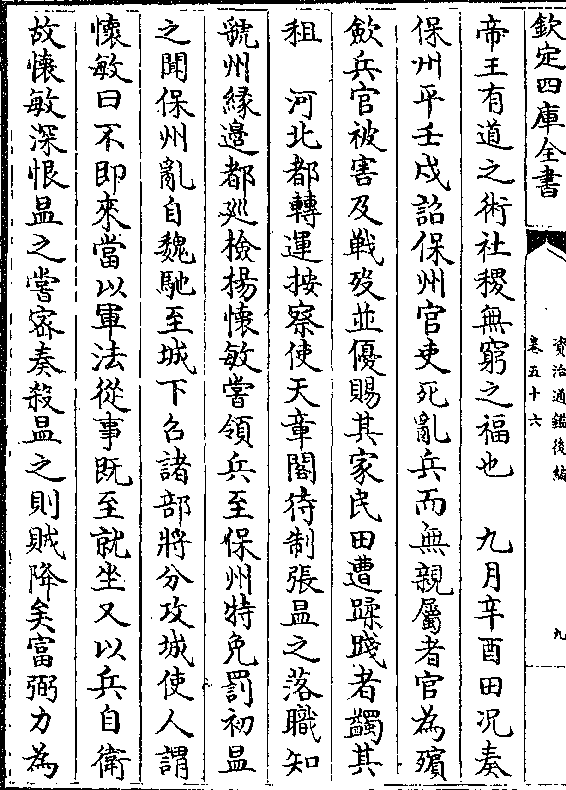 欽定四庫全書
資治通鑑後編
卷五十六
九
帝王有道之術社稷無窮之福也　九月辛酉田况奏
保州平壬戌詔保州官吏死亂兵而無親屬者官為殯
歛兵官被害及戰歿並優賜其家民田遭蹂踐者蠲其
租　河北都轉運按察使天章閣待制張昷之落職知
虢州緣邊都廵檢楊懷敏嘗領兵至保州特免罰初昷
之聞保州亂自魏馳至城下召諸部將分攻城使人謂
懷敏曰不即來當以軍法從事既至就坐又以兵自衛
故懷敏深恨昷之嘗宻奏殺昷之則賊降矣富弼力為